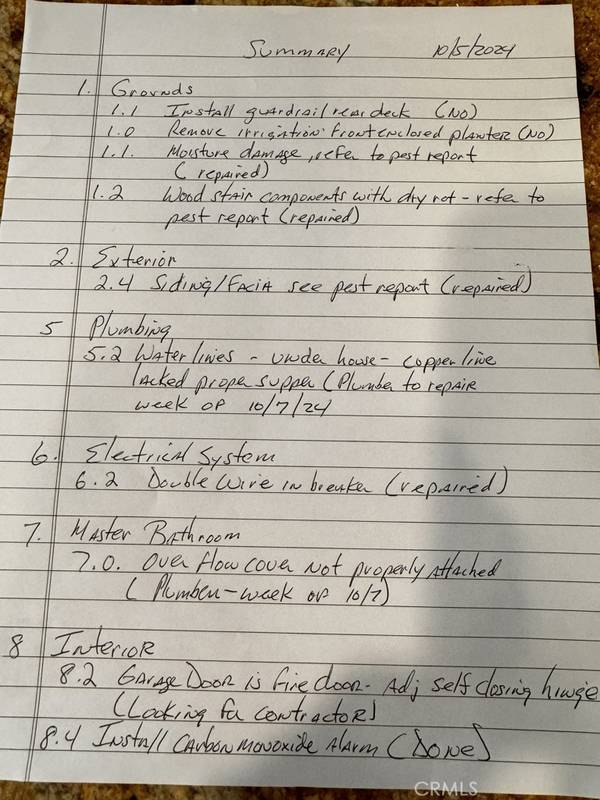 Summary 10/5/2024
1. Grounds
1.1 Install guardrail rear deck (NO)
1.0 Remove irrigation: front enclosed planter (NO)
1.1. Moisture damage, refer to pest report
(repaired)
1.2 Wood stair components with dry rot - refer to
pest report (repaired)
2. Exterior
2.4 Siding/Facia see pest report (repaired)
5 Plumbing
5.2 Water lines - under house - copper line
lacked proper supper (Plumber to repair
week of 10/7/24
6. Electrical System
6.2 Double wire in breaker (repaired)
7. Master Bathroom
7.0. Over flow cover not properly attached
(Plumber - week of 10/7)
8 Interior
8.2 Garage Door is fire door - Adj self closing hinge
(Looking for contractor)
8.4 Install Carbon monoxide Alarm (Done)
CRMLS